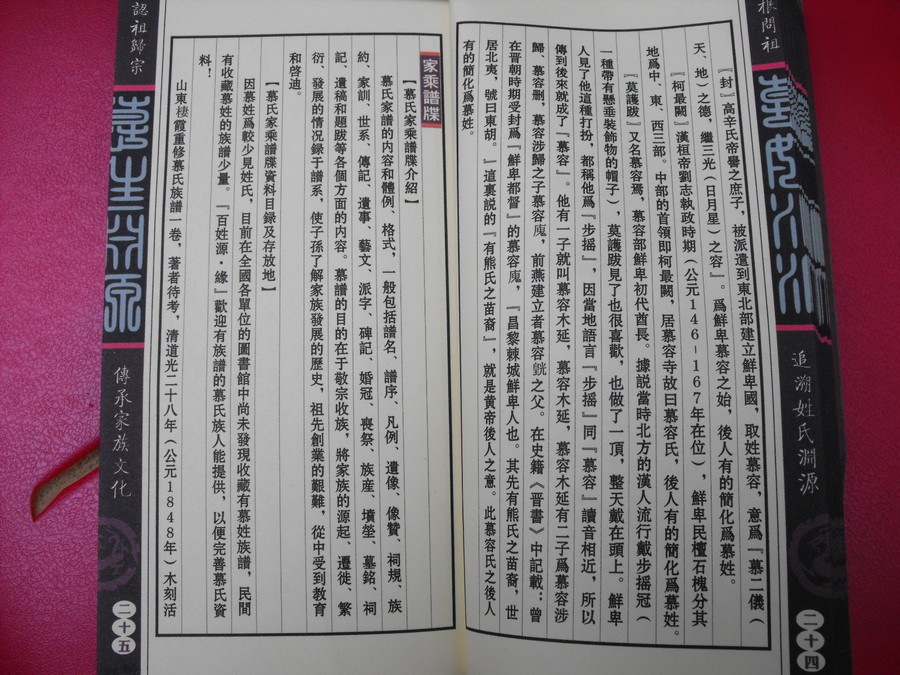 根問祖
追溯姓氏淵源
二十四
『封』高辛氏帝嚳之庶子，被派遣到東北部建立鮮卑國，取姓慕容，意爲『慕二儀（
天、地）之德，繼三光（日月星）之容』。爲鮮卑慕容之始，後人有的簡化爲慕姓。
『柯最闕』漢桓帝劉志執政時期（公元146－167年在位），鮮卑民檀石槐分其
地爲中、東、西三部。中部的首領即柯最闕，居慕容寺故曰慕容氏，後人有的簡化爲慕姓。
『莫護跋』又名慕容焉，慕容部鮮卑初代酋長。據説當時北方的漢人流行戴步摇冠（
一種帶有懸垂裝飾物的帽子），莫護跋見了也很喜歡，也做了一頂，整天戴在頭上。鮮卑
人見了他這種打扮，都稱他爲『步摇』，因當地語言『步摇』同『慕容』讀音相近，所以
傳到後來就成了『慕容』。他有一子就叫慕容木延，慕容木延，慕容木延有二子爲慕容涉
歸、慕容删，慕容涉歸之子慕容廆，前燕建立者慕容皝之父。在史籍《晋書》中記載：曾
在晋朝時期受封爲『鮮卑都督』的慕容廆，『昌黎棘城鮮卑人也。其先有熊氏之苗裔，世
居北夷，號曰東胡。』這裏説的『有熊氏之苗裔』，就是黄帝後人之意。此慕容氏之後人
有的簡化爲慕姓。
家乘譜牒
【慕氏家乘譜牒介紹】
慕氏家譜的内容和體例、格式，一般包括譜名、譜序、凡例、遺像、像贊、祠規、族
約、家訓、世系、傳記、遺事、藝文、派字、碑記、婚冠、喪祭、族産、墳塋、墓銘、祠
記、遺稿和題跋等各個方面的内容。慕譜的目的在于敬宗收族，將家族的源起、遷徙、繁
衍、發展的情况録于譜系，使子孫了解家族發展的歷史，祖先創業的艱難，從中受到教育
和啓迪。
【慕氏家乘譜牒資料目録及存放地】
因慕姓爲較少見姓氏，目前在全國各單位的圖書館中尚未發現收藏有慕姓族譜，民間
有收藏慕姓的族譜少量。『百姓源·緣』歡迎有族譜的慕氏族人能提供，以便完善慕氏資
料！
山東棲霞重修慕氏族譜一卷，著者待考，清道光二十八年（公元1848年）木刻活
認祖歸宗
傳承家族文化
二十五